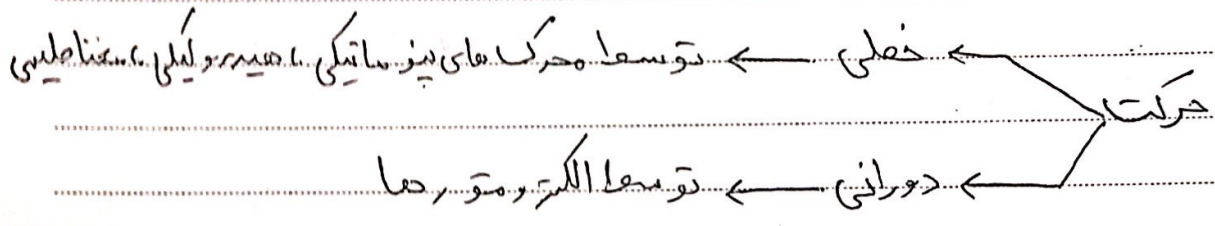 خطی ← توسط محرک های پنوماتیکی، هیدرولیکی، مغناطیسی
حرکت
دورانی ← توسط الکتروموتورها